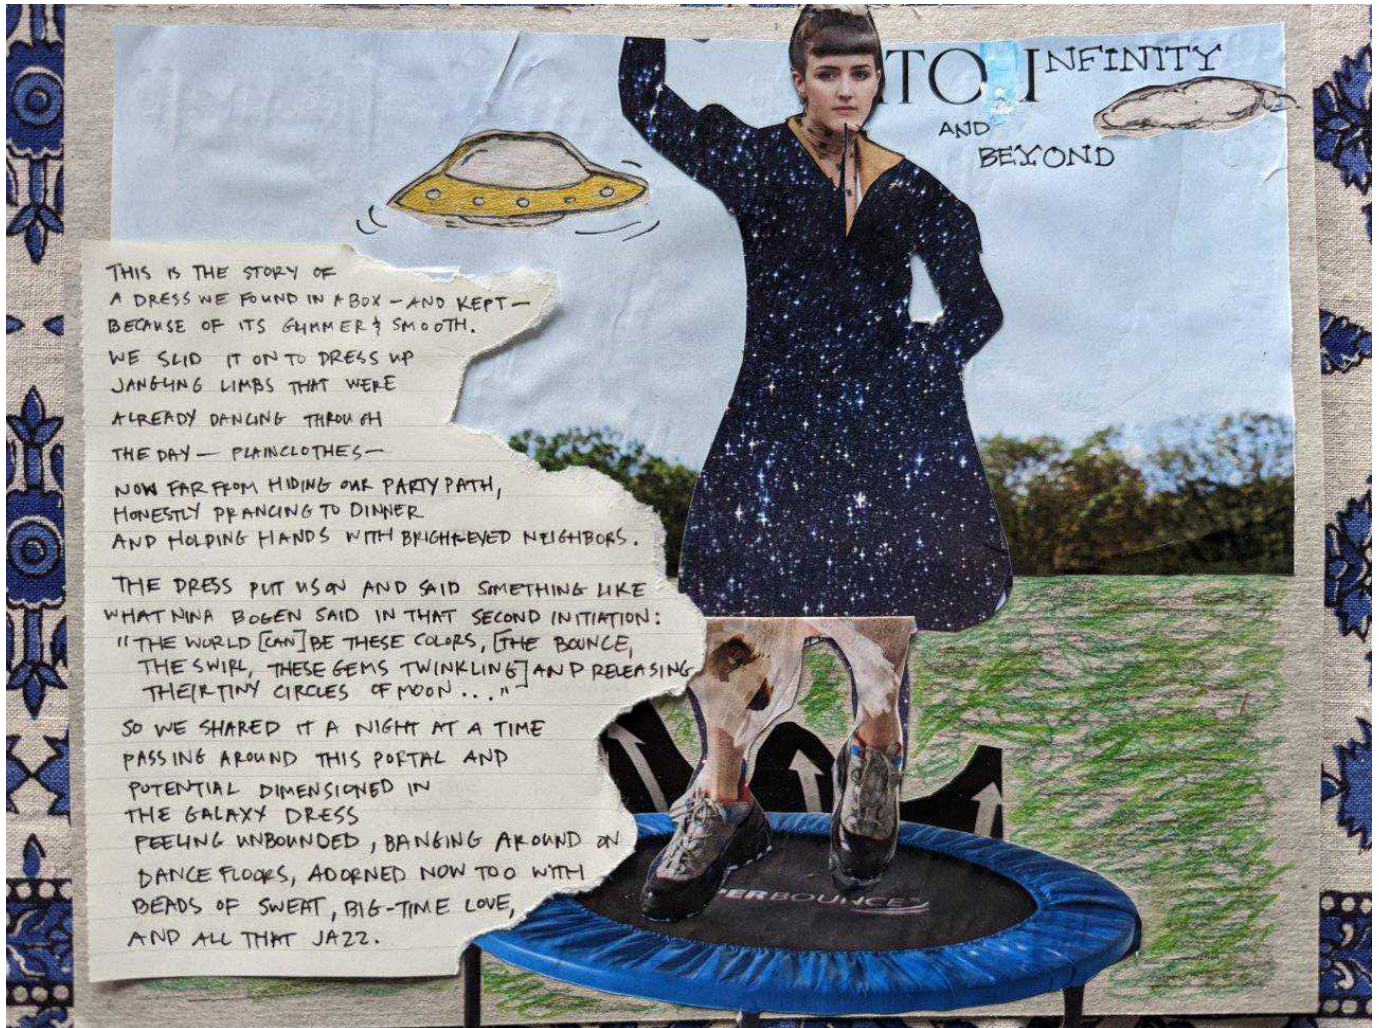 TO INFINITY
AND
BEYOND
THIS IS THE STORY OF
A DRESS WE FOUND IN A BOX – AND KEPT –
BECAUSE OF ITS GLIMMER & SMOOTH.
WE SLID IT ON TO DRESS UP
JANGLING LIMBS THAT WERE
ALREADY DANCING THROUGH
THE DAY – PLAINCLOTHES –
NOW FAR FROM HIDING OUR PARTY PATH,
HONESTLY PRANCING TO DINNER
AND HOLDING HANDS WITH BRIGHT-EYED NEIGHBORS.
THE DRESS PUT US ON AND SAID SOMETHING LIKE
WHAT NINA BOGEN SAID IN THAT SECOND INITIATION:
"THE WORLD [CAN] BE THESE COLORS, [THE BOUNCE,
THE SWIRL, THESE GEMS TWINKLING] AND RELEASING
THEIR TINY CIRCLES OF MOON..."
SO WE SHARED IT A NIGHT AT A TIME
PASSING AROUND THIS PORTAL AND
POTENTIAL DIMENSIONED IN
THE GALAXY DRESS
FEELING UNBOUNDED, BANGING AROUND ON
DANCE FLOORS, ADORNED NOW TOO WITH
BEADS OF SWEAT, BIG-TIME LOVE,
AND ALL THAT JAZZ.
ERBOUNCE